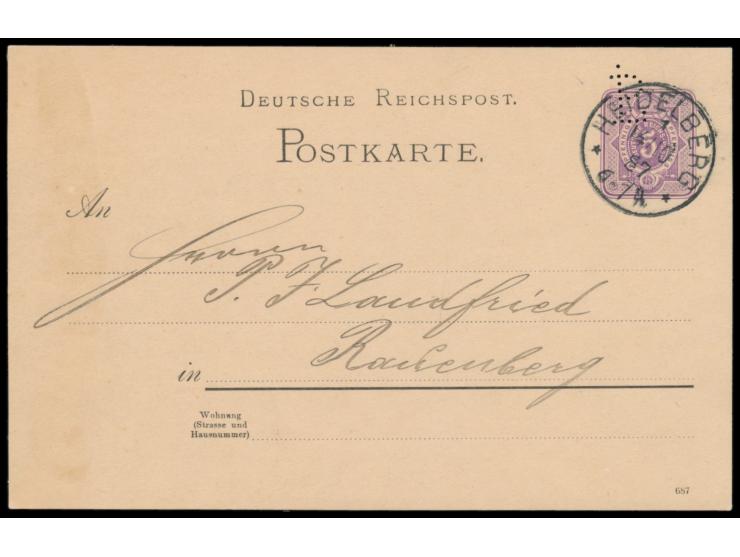 DEUTSCHE REICHSPOST.
POSTKARTE.
HEIDELBERG
87
6-7 A
An
Herrn
P. J. Landfried
in Rauenberg
Wohnung
(Strasse und
Hausnummer)
687